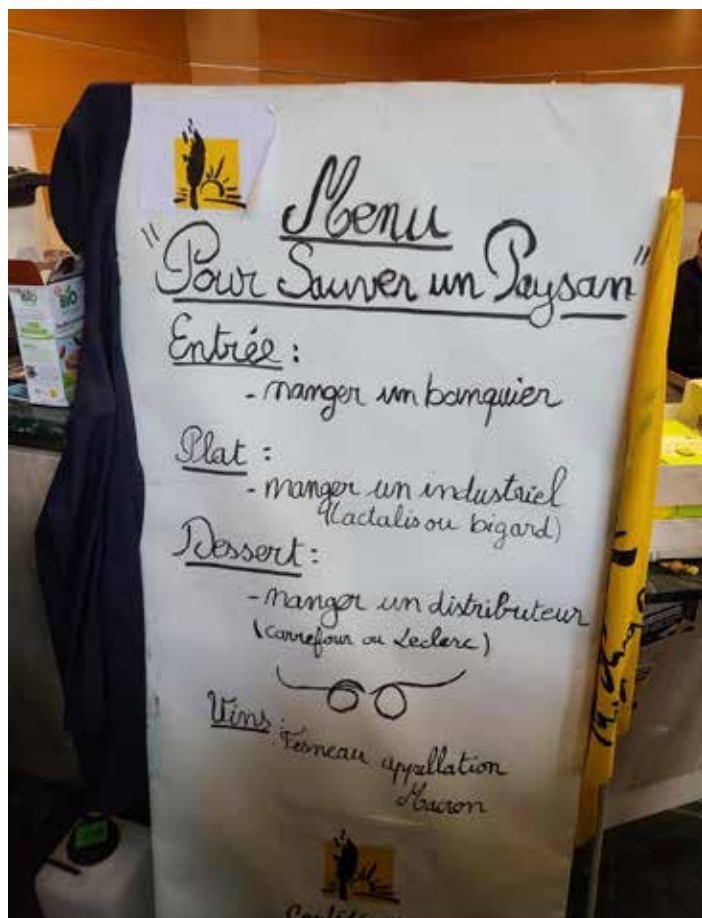 Menu
"Pour Sauver un Paysan"
Entrée :
- manger un banquier
Plat :
- manger un industriel
(Lactalis ou bigard)
Dessert :
- manger un distributeur
(Carrefour ou Leclerc)
Vins : Fesneau appellation
Macron
BIO